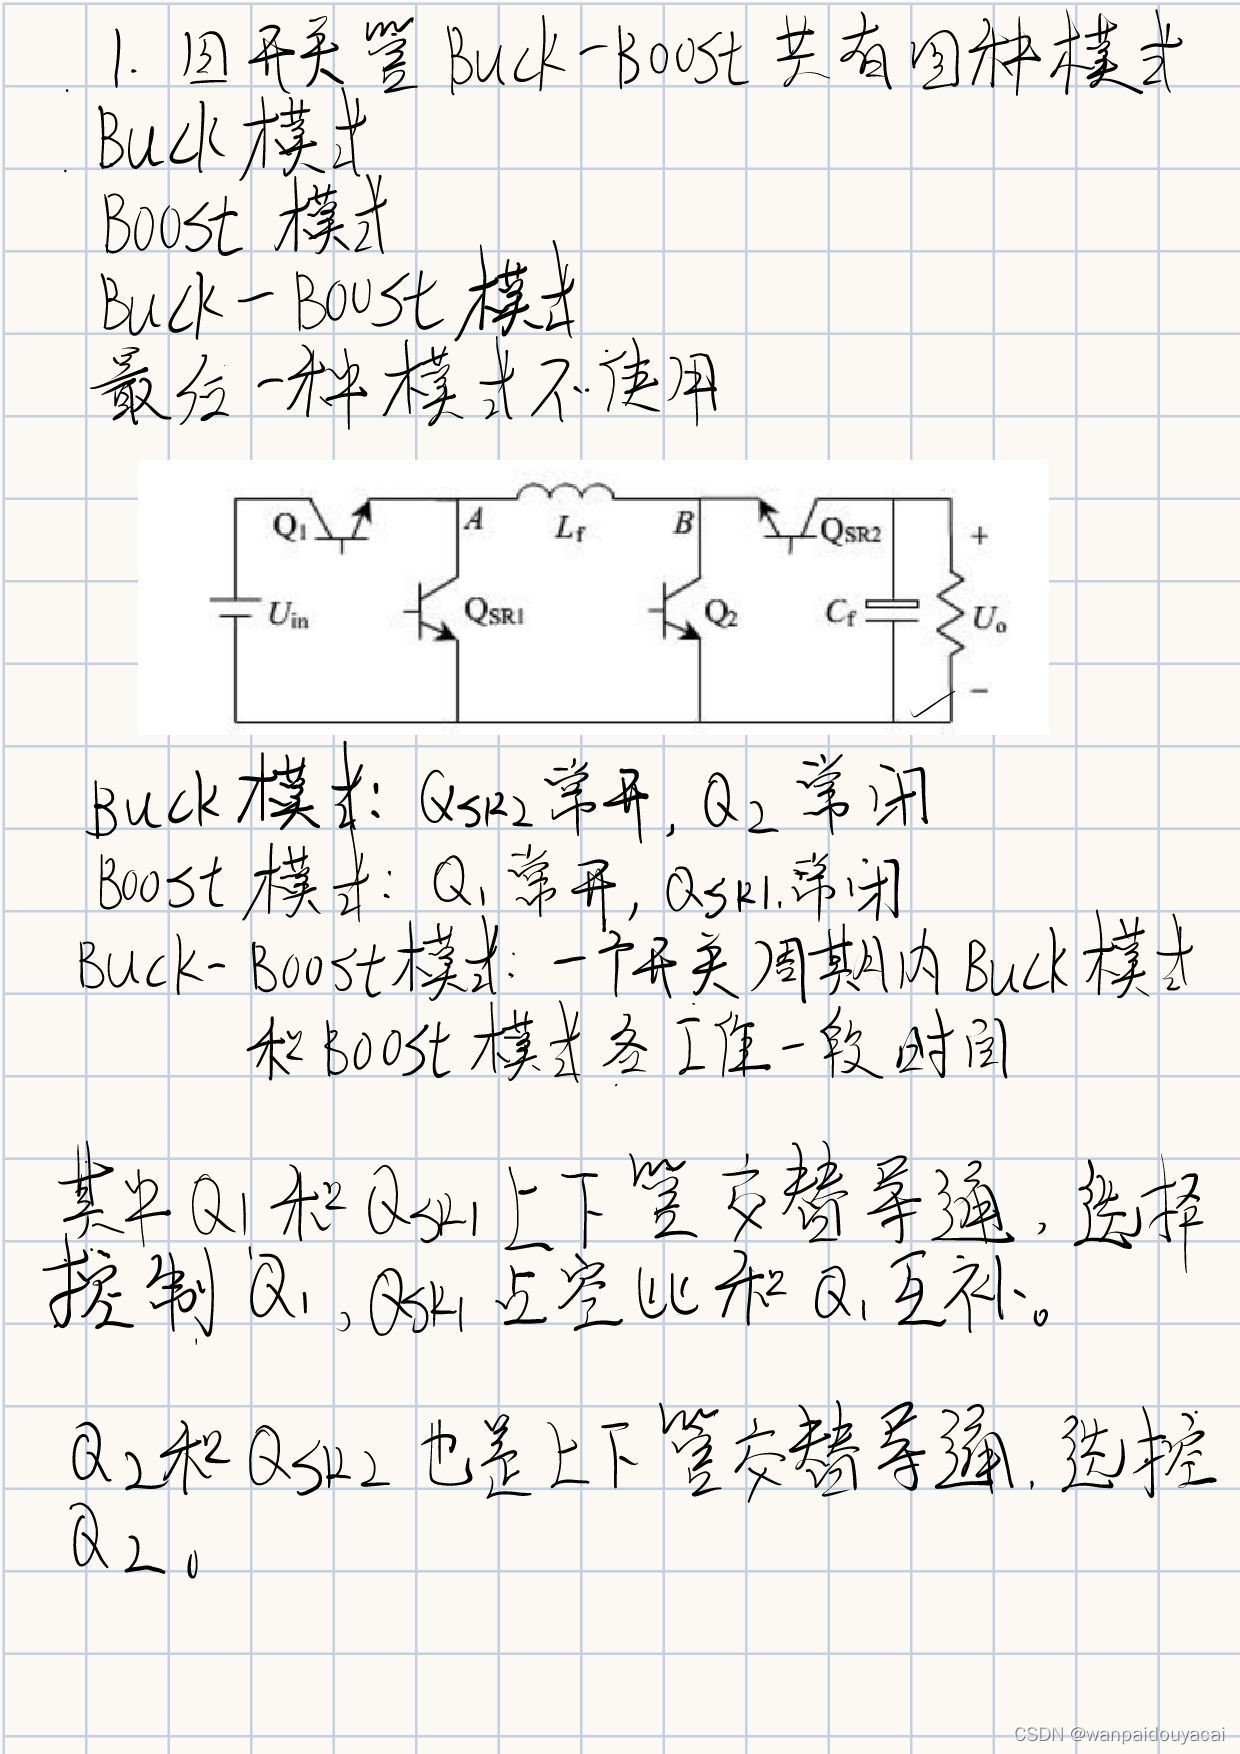 1. 四开关管Buck-Boost共有四种模式
Buck模式
Boost模式
Buck-Boost模式
最后一种模式不使用
Q1
A
Lf
B
QSR2
+
Uin
QSR1
Q2
Cf
Uo
−
Buck模式：QSR2常开，Q2常闭
Boost模式：Q1常开，QSR1常闭
Buck-Boost模式：一个开关周期内Buck模式
和Boost模式各工作一段时间
其中Q1和QSR1上下管交替导通，选择
控制Q1，QSR1占空比和Q1互补。
Q2和QSR2也是上下管交替导通，选控
Q2。
CSDN @wanpaidouyacai